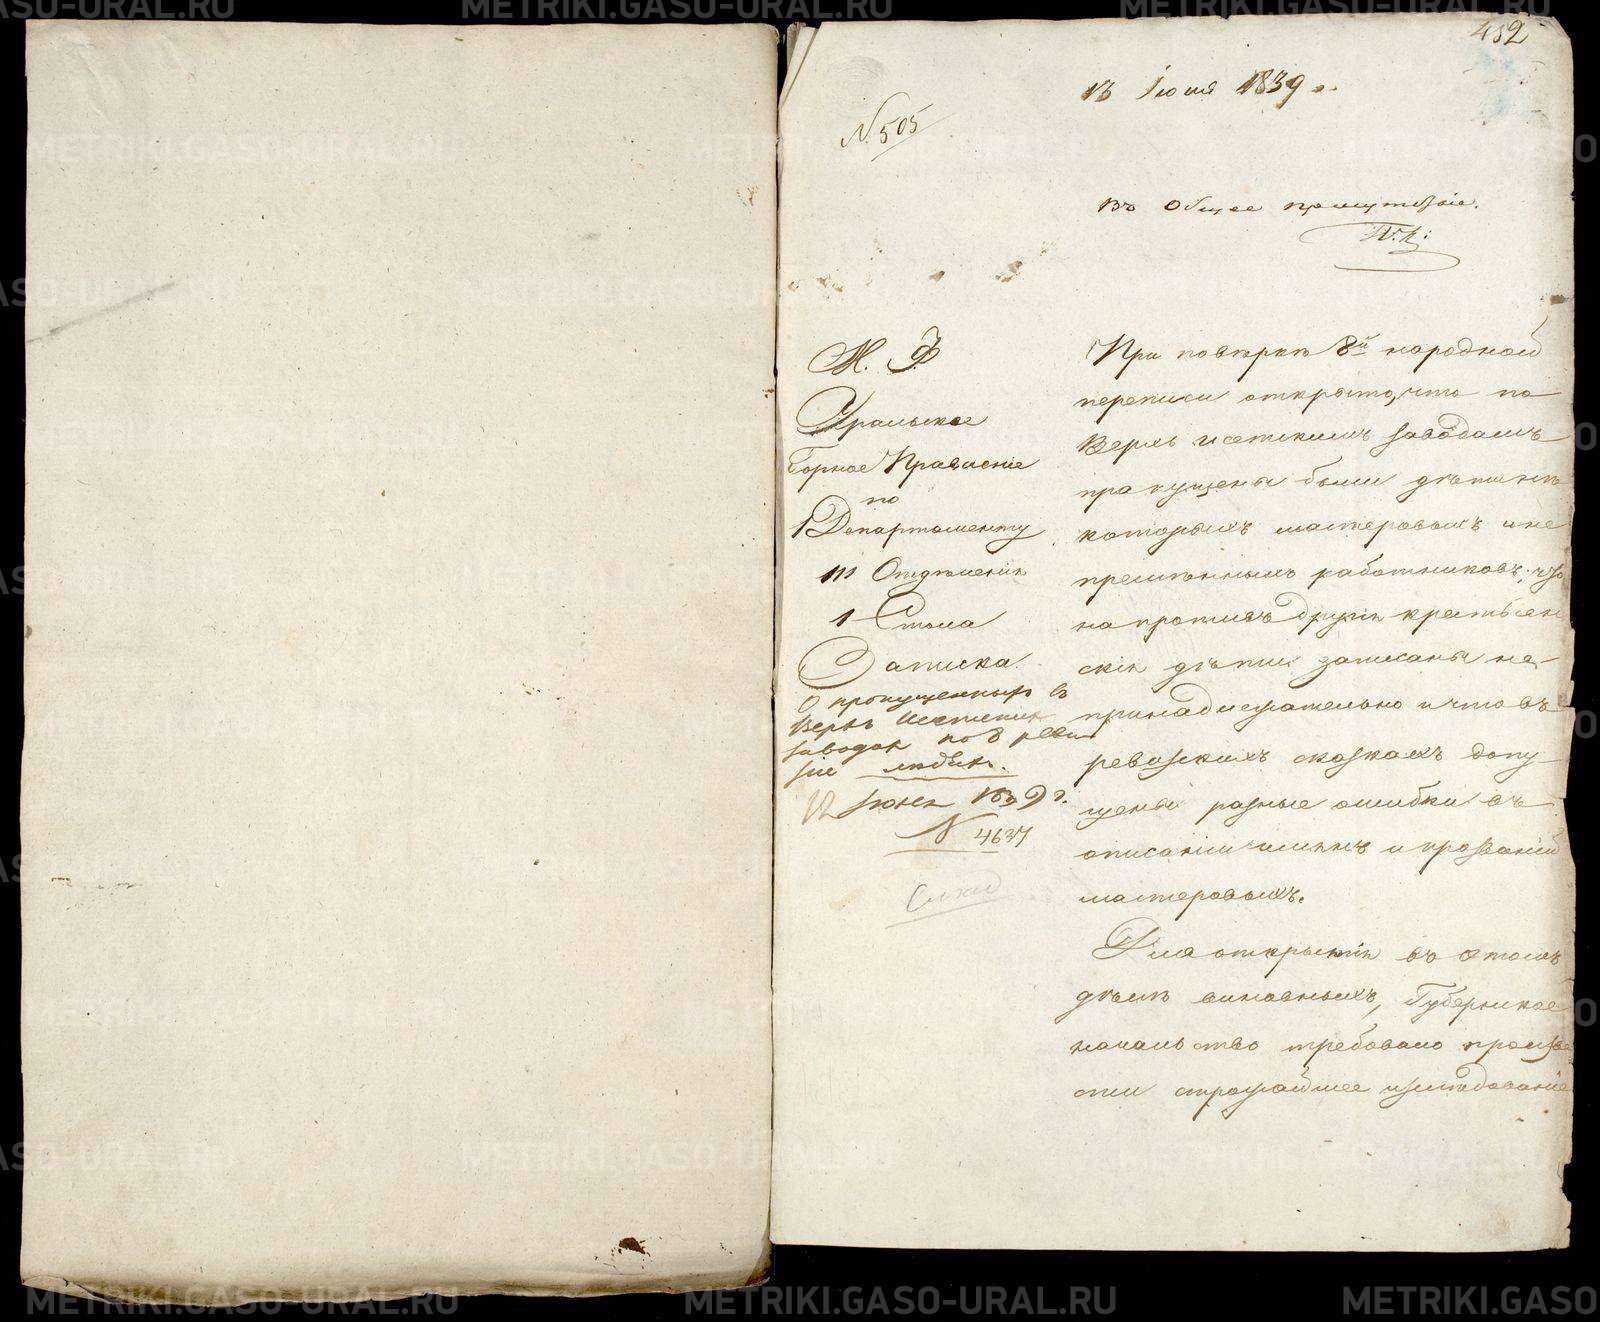 412
13 Июня 1839 г.
N. 505
Въ Общее присутствіе.
М. Ф.
Уральское
Горное Правленіе
по
1 Департаменту
III Отдѣленія
1 Стола
Записка
О пропущенныхъ въ
Верхъ Исетскихъ
заводах по 8 реви
зіи людяхъ.
12 Июня 1839 г.
N 4637
При повѣркѣ 8й народной
переписи открыто, что по
Верхъ исетскимъ заводамъ
пропущены были дѣти нѣ
которыхъ мастеровыхъ и не
премѣнныхъ работниковъ; что
на противъ другія крестьян
скія дѣти записаны не-
принадлежательно и что въ
ревизскихъ сказкахъ допу
щены разные ошибки въ
описаніи имянъ и прозваній
мастеровыхъ.
Для открытія въ этомъ
дѣлѣ виновныхъ, Губернское
начальство требовало произве
сти строжайшее изслѣдованіе
METRIKI.GASO-URAL.RU